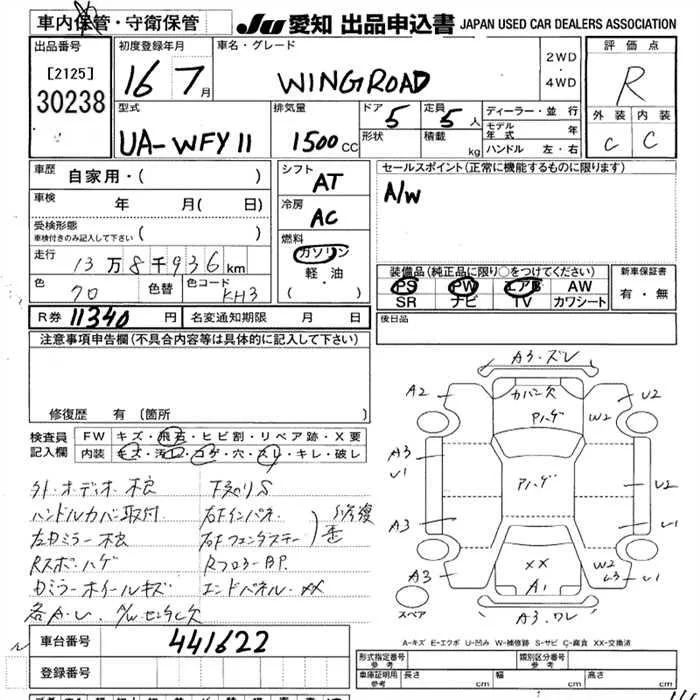 車内保管・守衛保管
JU 愛知 出品申込書 JAPAN USED CAR DEALERS ASSOCIATION
出品番号
[2125]
30238
初度登録年月
16 7月
車名・グレード
WINGROAD
2WD
・
4WD
評価点
R
外装 内装
C C
型式
UA-WFY11
排気量
1500 CC
ドア 5
形状
定員 5人
積載 kg
ディーラー・並行
モデル年式 年
ハンドル 左・右
車歴 自家用・( )
車検 年 月( 日)
受検形態
車検付きのみ記入して下さい ( )
走行 13万8千936km
色 70 色替 色コード KH3
シフト AT
冷房 AC
燃料
ガソリン
軽・油
・( )
セールスポイント(正常に機能するものに限ります)
A/W
装備品(純正品に限り○をつけてください)
PS PW エアB AW
SR ナビ TV カワシート
新車保証書
有・無
R券 11340円 名変通知期限 月 日
後日品
注意事項申告欄(不具合内容等は具体的に記入して下さい)
修復歴 有(箇所 )
検査員記入欄
FW キズ・飛石・ヒビ割・リペア跡・X要
内装 キズ・汚レ・コゲ・穴・スレ・キレ・破レ
外・オーディオ・木良 下廻りS
ハンドルカバー取付 右Fインパネ
左ミラー 右Fフェンダステー
修復歪
Rスポハゲ Rフロアー BP.
ホイールキズ エンドパネル・XX
A3・ズレ
A2 カバン欠 U2
Pハゲ W2
A3
U1
Pハゲ U2
A3 U1
XX W2
A3 A1 U3 U1
スペア A3・ワレ
A-キズ E-エクボ U-凹み W-補修跡 S-サビ C-腐食 XX-交換済
車台番号 441622
登録番号
形式指定番号 参考 類別区分番号 参考
車庫証明用 参考 長さ cm 幅 cm 高さ cm